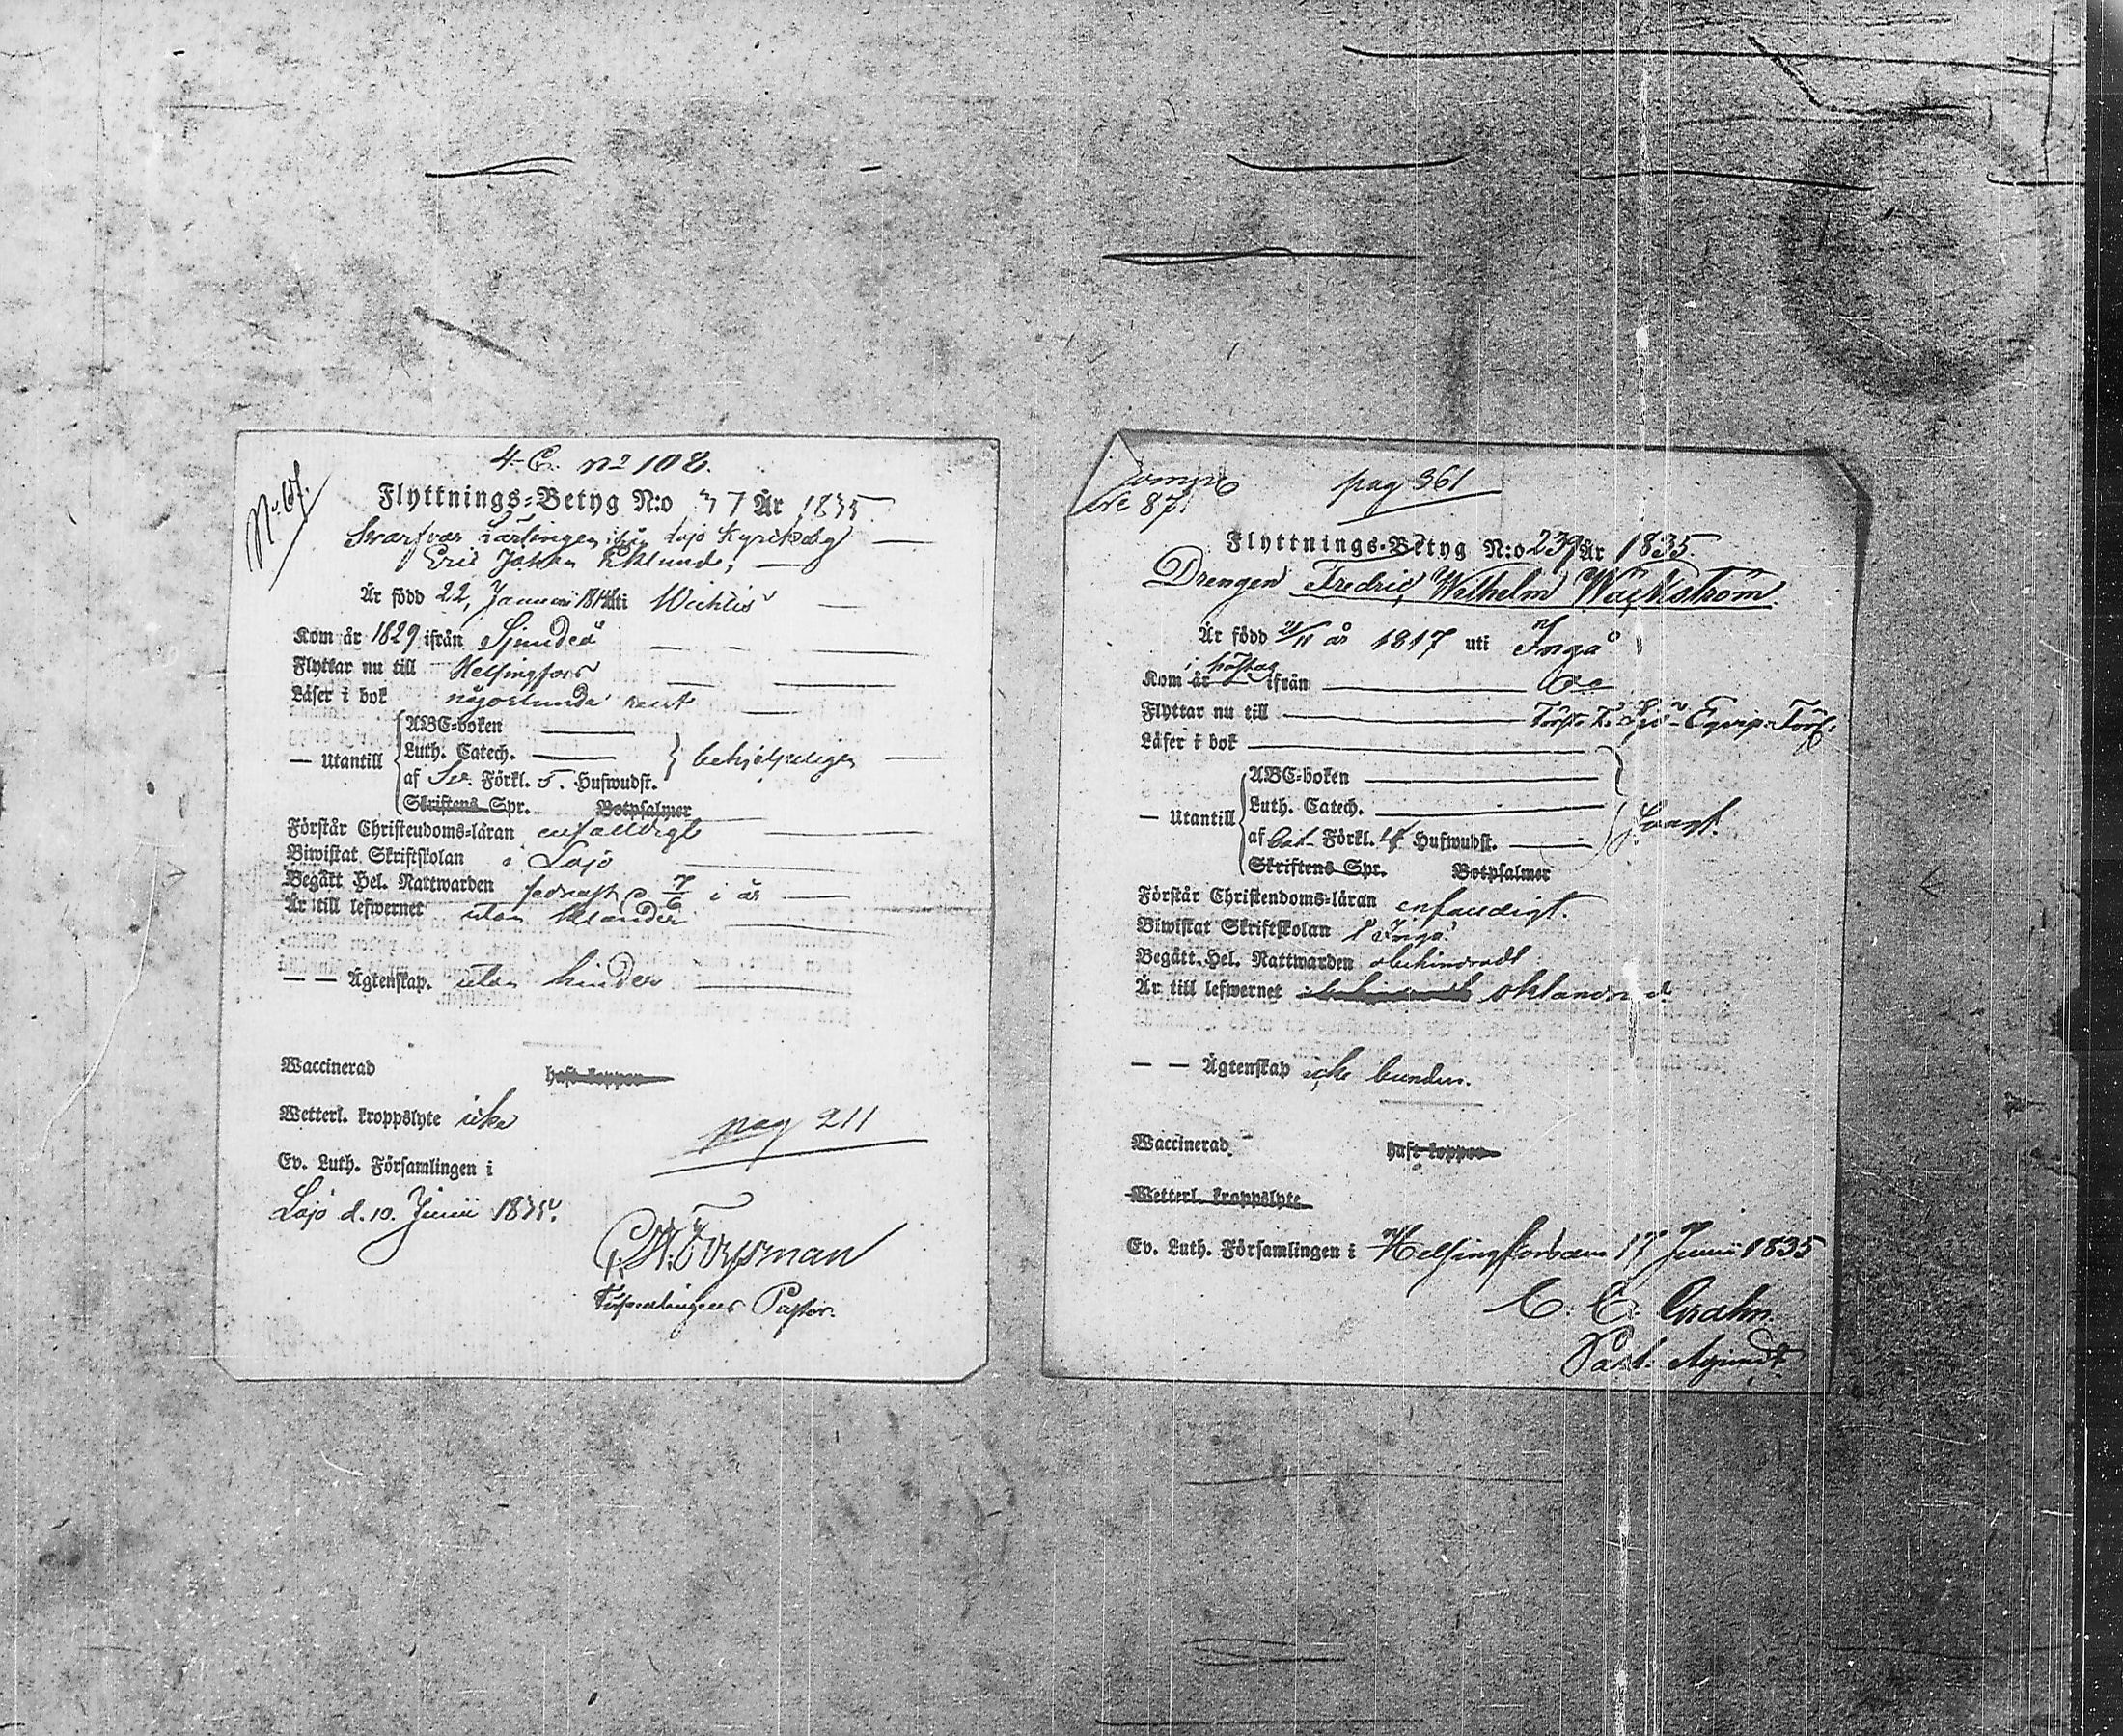 No 67.
4 C. No 108.
Flyttnings-Betyg N:o 37 År 1835
Svarfvar Lärlingen ifrån Lojo Kyrikoby
Eric Johan Eklund,
Är född 22, Januarii uti Wichtis
Kom år 1829 ifrån Sjundeå
Flyttar nu till Helsingfors
Läser i bok någorlunda rent
— Utantill
ABC-boken
Luth. Catech.
behjelpeligen
af Sv. Förkl. 5. Hufwudst.
Skriftens Spr. Botpsalmer
Förstår Christendoms-läran enfalldigt
Biwistat Skriftskolan i Lojo
Begått Hel. Nattwarden sednast d. 7/6 i år
Är till lefwernet utan klander
— — Ägtenskap. utan hinder
Waccinerad haft koppor
Wetterl. kroppslyte icke
pag 211
Ev. Luth. Församlingen i
Lojo d. 10. Junii 1835.
Församlingens Pastor.
pag 361
No 87.
Flyttnings-Betyg N:o 239 År 1835.
Drengen Fredric Wilhelm Wäckström.
Är född 21/11 år 1817 uti Ingå
i höstas
Kom år ifrån
Flyttar nu till Första Sjö-Equip.
Läser i bok
— Utantill
ABC-boken
Luth. Catech.
Svagt.
af Förkl. 4 Hufwudst.
Skriftens Spr. Botpsalmer
Förstår Christendoms-läran enfaldigt.
Biwistat Skriftskolan i Ingå.
Begått Hel. Nattwarden obehindradt
Är till lefwernet oklandrad.
— — Ägtenskap icke bunden.
Waccinerad haft koppor
Wetterl. kroppslyte
Ev. Luth. Församlingen i Helsingfors den 17 Junii 1835
C. C. Grahn.
Past. Adjunct.